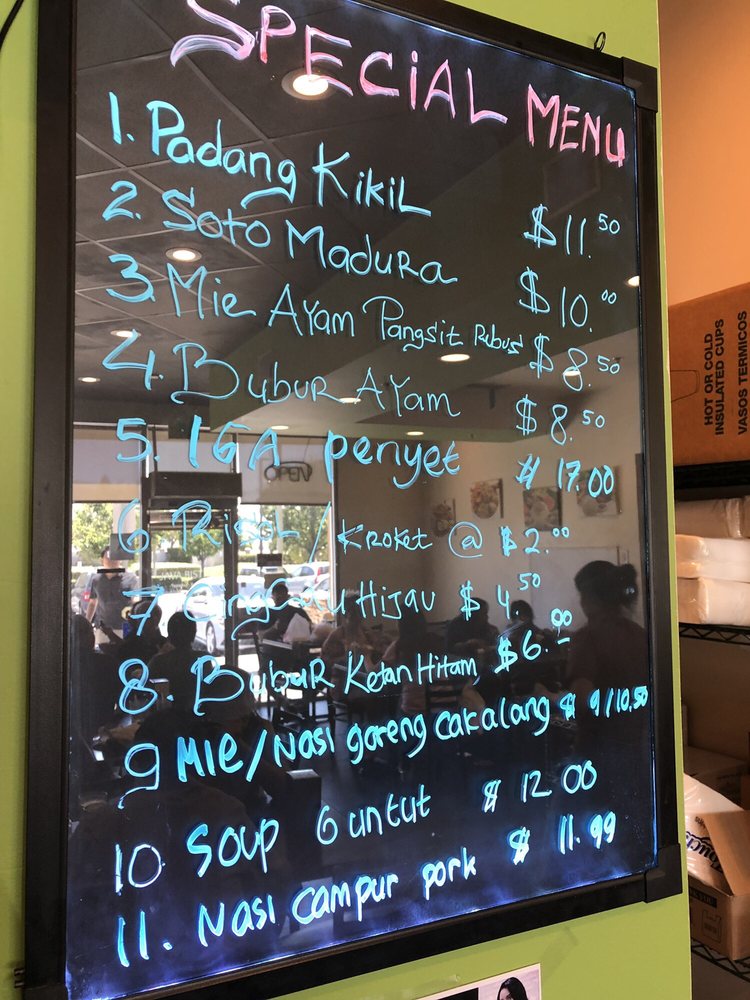 SPECIAL MENU
1. Padang KikiL $11.50
2. Soto Madura $10.00
3. Mie Ayam Pangsit Rebus $8.50
4. Bubur Ayam $8.50
5. IGA penyet $17.00
6 Risol / Kroket @ $2.00
7 Hijau $4.50
8. Bubur Ketan Hitam $6.00
9 Mie/Nasi goreng cakalang $9/10.50
10 Soup Guntut $12 00
11. Nasi campur pork $11.99
OPEN
HOT OR COLD
INSULATED CUPS
VASOS TERMICOS